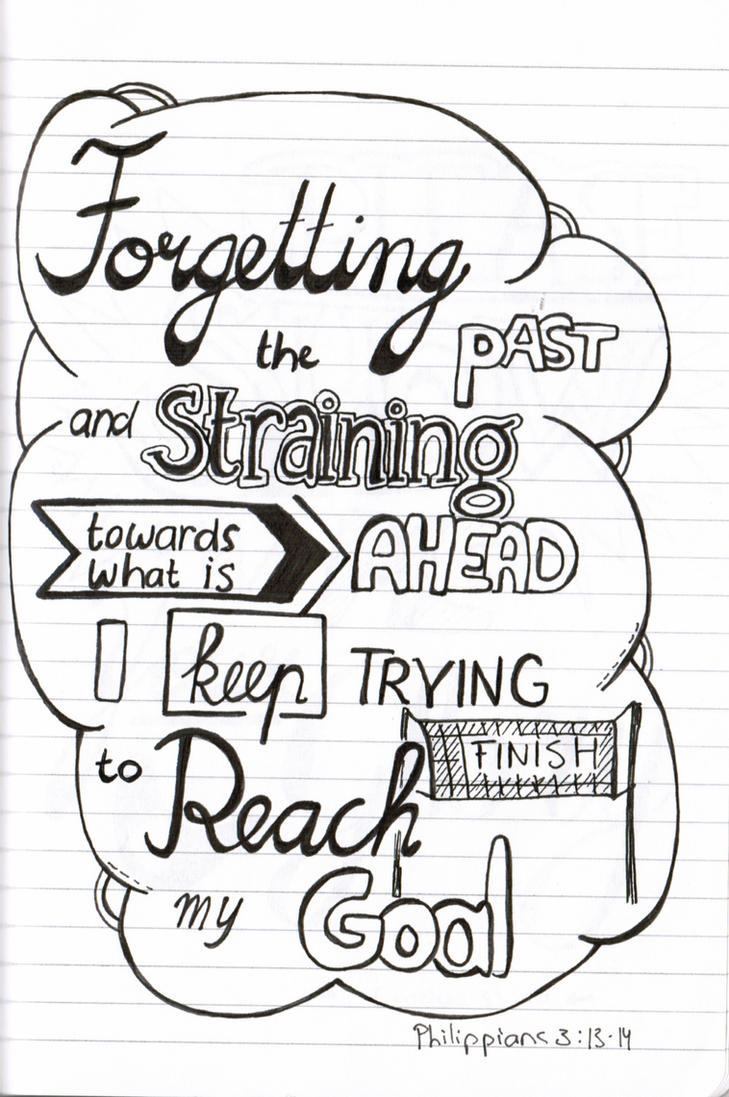 Forgetting
the PAST
and Straining
towards
what is AHEAD
I keep TRYING
to Reach FINISH
my Goal
Philippians 3:13-14